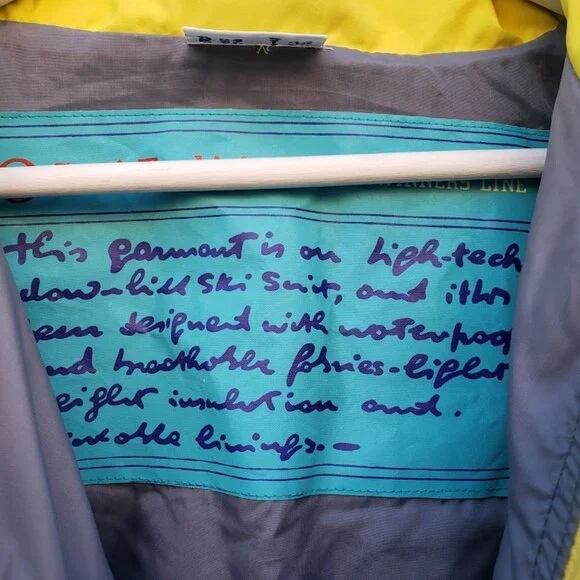 WINNERS LINE
this garment is an high-tech
down-hill ski suit, and it has
been designed with waterproof
and breathable fabrics-light
weight insulation and.
linings.—